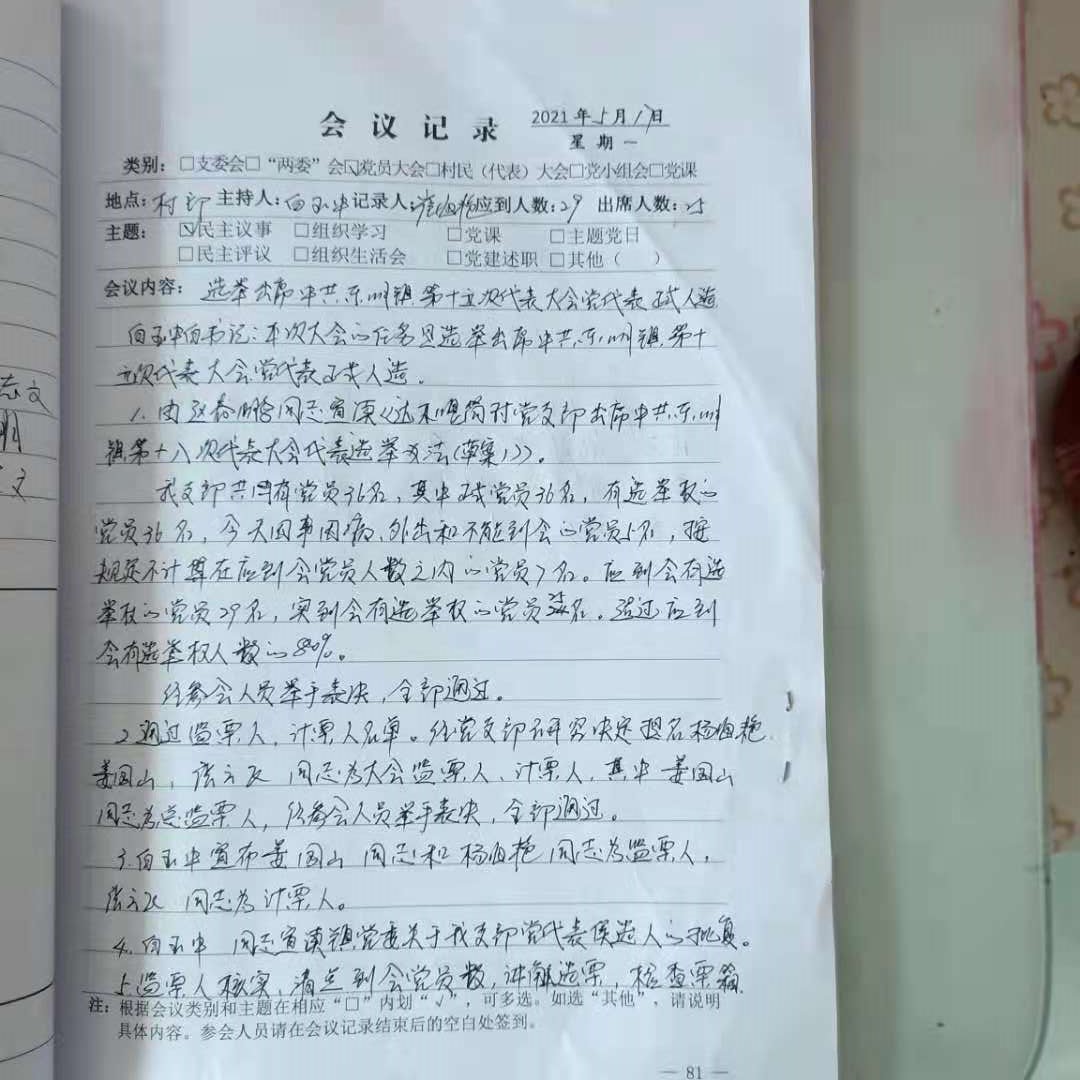 会议记录 2021年5月17日
星期一
类别：□支委会□“两委”会☑党员大会□村民（代表）大会□党小组会□党课
地点：村部 主持人：白玉中 记录人： 应到人数：29 出席人数：25
主题：☑民主议事 □组织学习 □党课 □主题党日
□民主评议 □组织生活会 □党建述职 □其他（ ）
会议内容：选举出席中共东州镇第十五次代表大会党代表正式人选
白玉中白书记：本次大会的任务是选举出席中共东州镇第十
五次代表大会党代表正式人选。
1.由赵春鹏同志宣读《达木嘎筒村党支部出席中共东州
镇第十八次代表大会代表选举办法(草案)》。
我支部共有党员36名，其中正式党员36名，有选举权的
党员36名，今天因事因病、外出和不能到会的党员5名，按
规定不计算在应到会党员人数之内的党员7名。应到会有选
举权的党员29名，实到会有选举权的党员25名。超过应到
会有选举权人数的80%。
经参会人员举手表决，全部通过。
2.通过监票人，计票人名单。经党支部研究决定提名杨艳
姜国山，张 同志为大会监票人、计票人，其中姜国山
同志为总监票人，经参会人员举手表决，全部通过。
3.白玉中宣布姜国山 同志和 杨 艳 同志为监票人，
张 同志为计票人。
4.白玉中 同志宣读镇党委关于我支部党代表候选人的批复。
5.监票人核实，清点到会党员数，讲解选票，检查票箱
注：根据会议类别和主题在相应“□”内划“√”，可多选。如选“其他”，请说明
具体内容。参会人员请在会议记录结束后的空白处签到。
— 81 —
志文
明
文